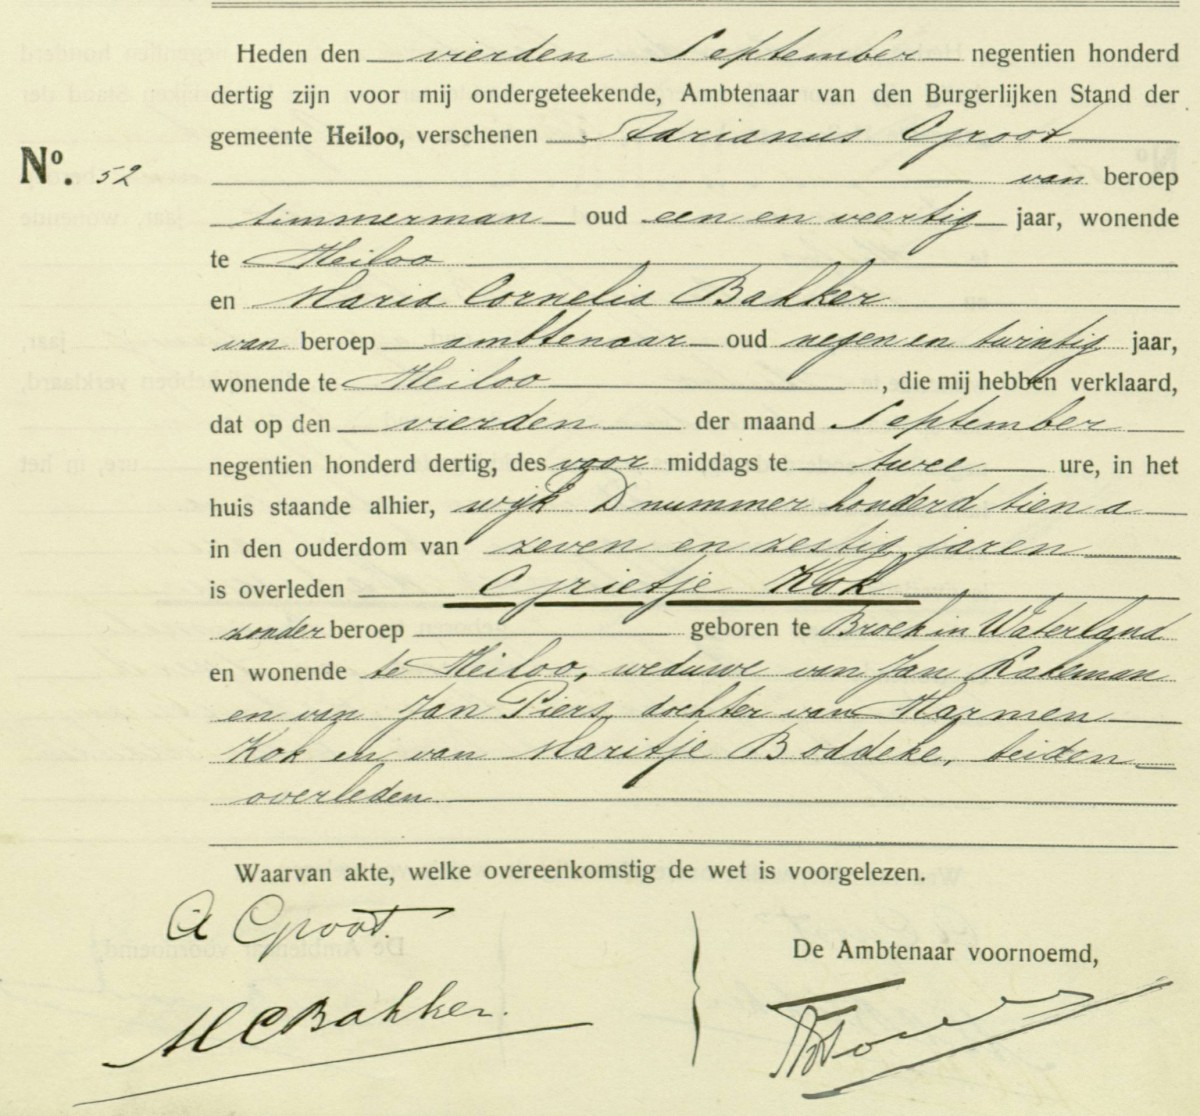 Heden den vierden September negentien honderd
dertig zijn voor mij ondergeteekende, Ambtenaar van den Burgerlijken Stand der
gemeente Heiloo, verschenen Adrianus Groot
No. 52 van beroep
timmerman oud een en veertig jaar, wonende
te Heiloo
en Maria Cornelia Bakker
van beroep ambtenaar oud negen en twintig jaar,
wonende te Heiloo, die mij hebben verklaard,
dat op den vierden der maand September
negentien honderd dertig, des voor middags te twee ure, in het
huis staande alhier, wijk D nummer honderd tien a
in den ouderdom van zeven en zestig jaren
is overleden Grietje Kok
zonder beroep geboren te Broek in Waterland
en wonende te Heiloo, weduwe van Jan Kakeman
en van Jan Piers, dochter van Harmen
Kok en van Maritje Boddeke, beiden
overleden.
Waarvan akte, welke overeenkomstig de wet is voorgelezen.
A Groot.
De Ambtenaar voornoemd,
M C Bakker.